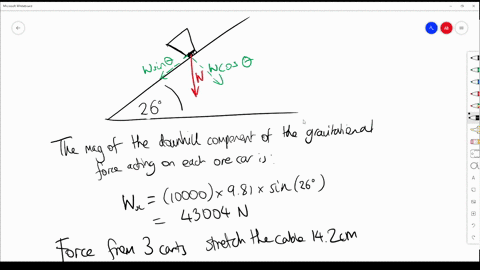 Microsoft Whiteboard
w sinθ
W
w cos θ
26°
The mag of the downhill component of the gravitational
force acting on each one car is:
Wx = (10000) × 9.81 × sin(26°)
= 43004 N
Force from 3 carts stretch the cable 14.2cm